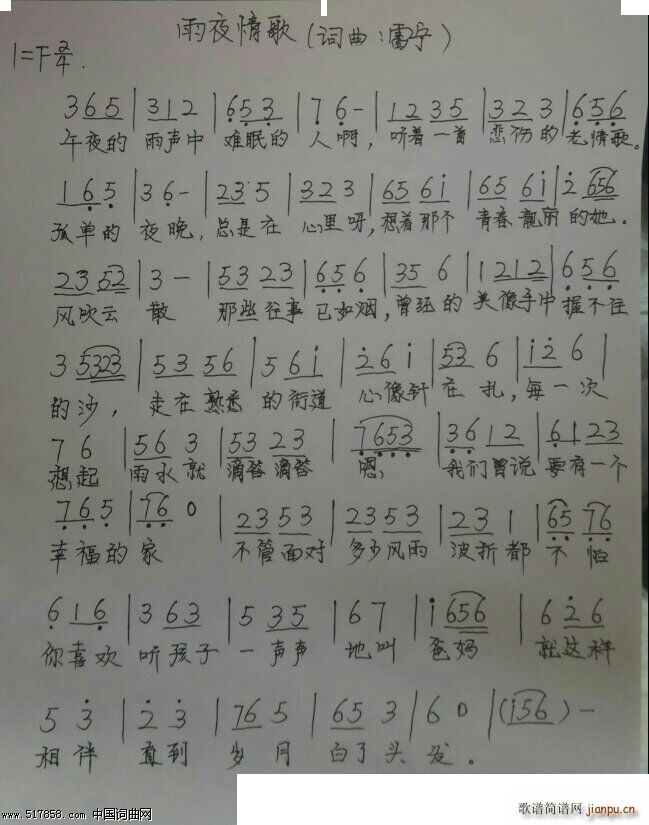 雨夜情歌(词曲:雷宇)
1=F 2/4.
365|312|653|76-|1235|323|656
午夜的 雨声中 难眠的 人啊,听着一首 悲伤的 老情歌。
165|36-|235|323|656i|656i|2656
孤单的 夜晚,总是在 心里呀,想着那个 青春靓丽的她.
235352|3-|5323|656|356|1212|656
风吹云 散 那些往事 已如烟,曾经的 美像手中 握不住
35323|5356|56i|26i|536|i26|
的沙,走在熟悉 的街道 心像针 在 扎,每一次
76|563|5323|7653|3612|6123
想起 雨水就 滴答滴答 嗯, 我们曾说 要有一个
765|760|2353|2353|231|6576
幸福的 家 不管面对 多少风雨 波折都 不 怕
616|363|535|67|i656|626
你喜欢 听孩子 一声声 地叫 爸妈 就这样
53|23|765|653|60|(i56)-
相伴 直到 岁月 白了头 发。
www.517858.com 中国词曲网
歌谱简谱网 jianpu.cn